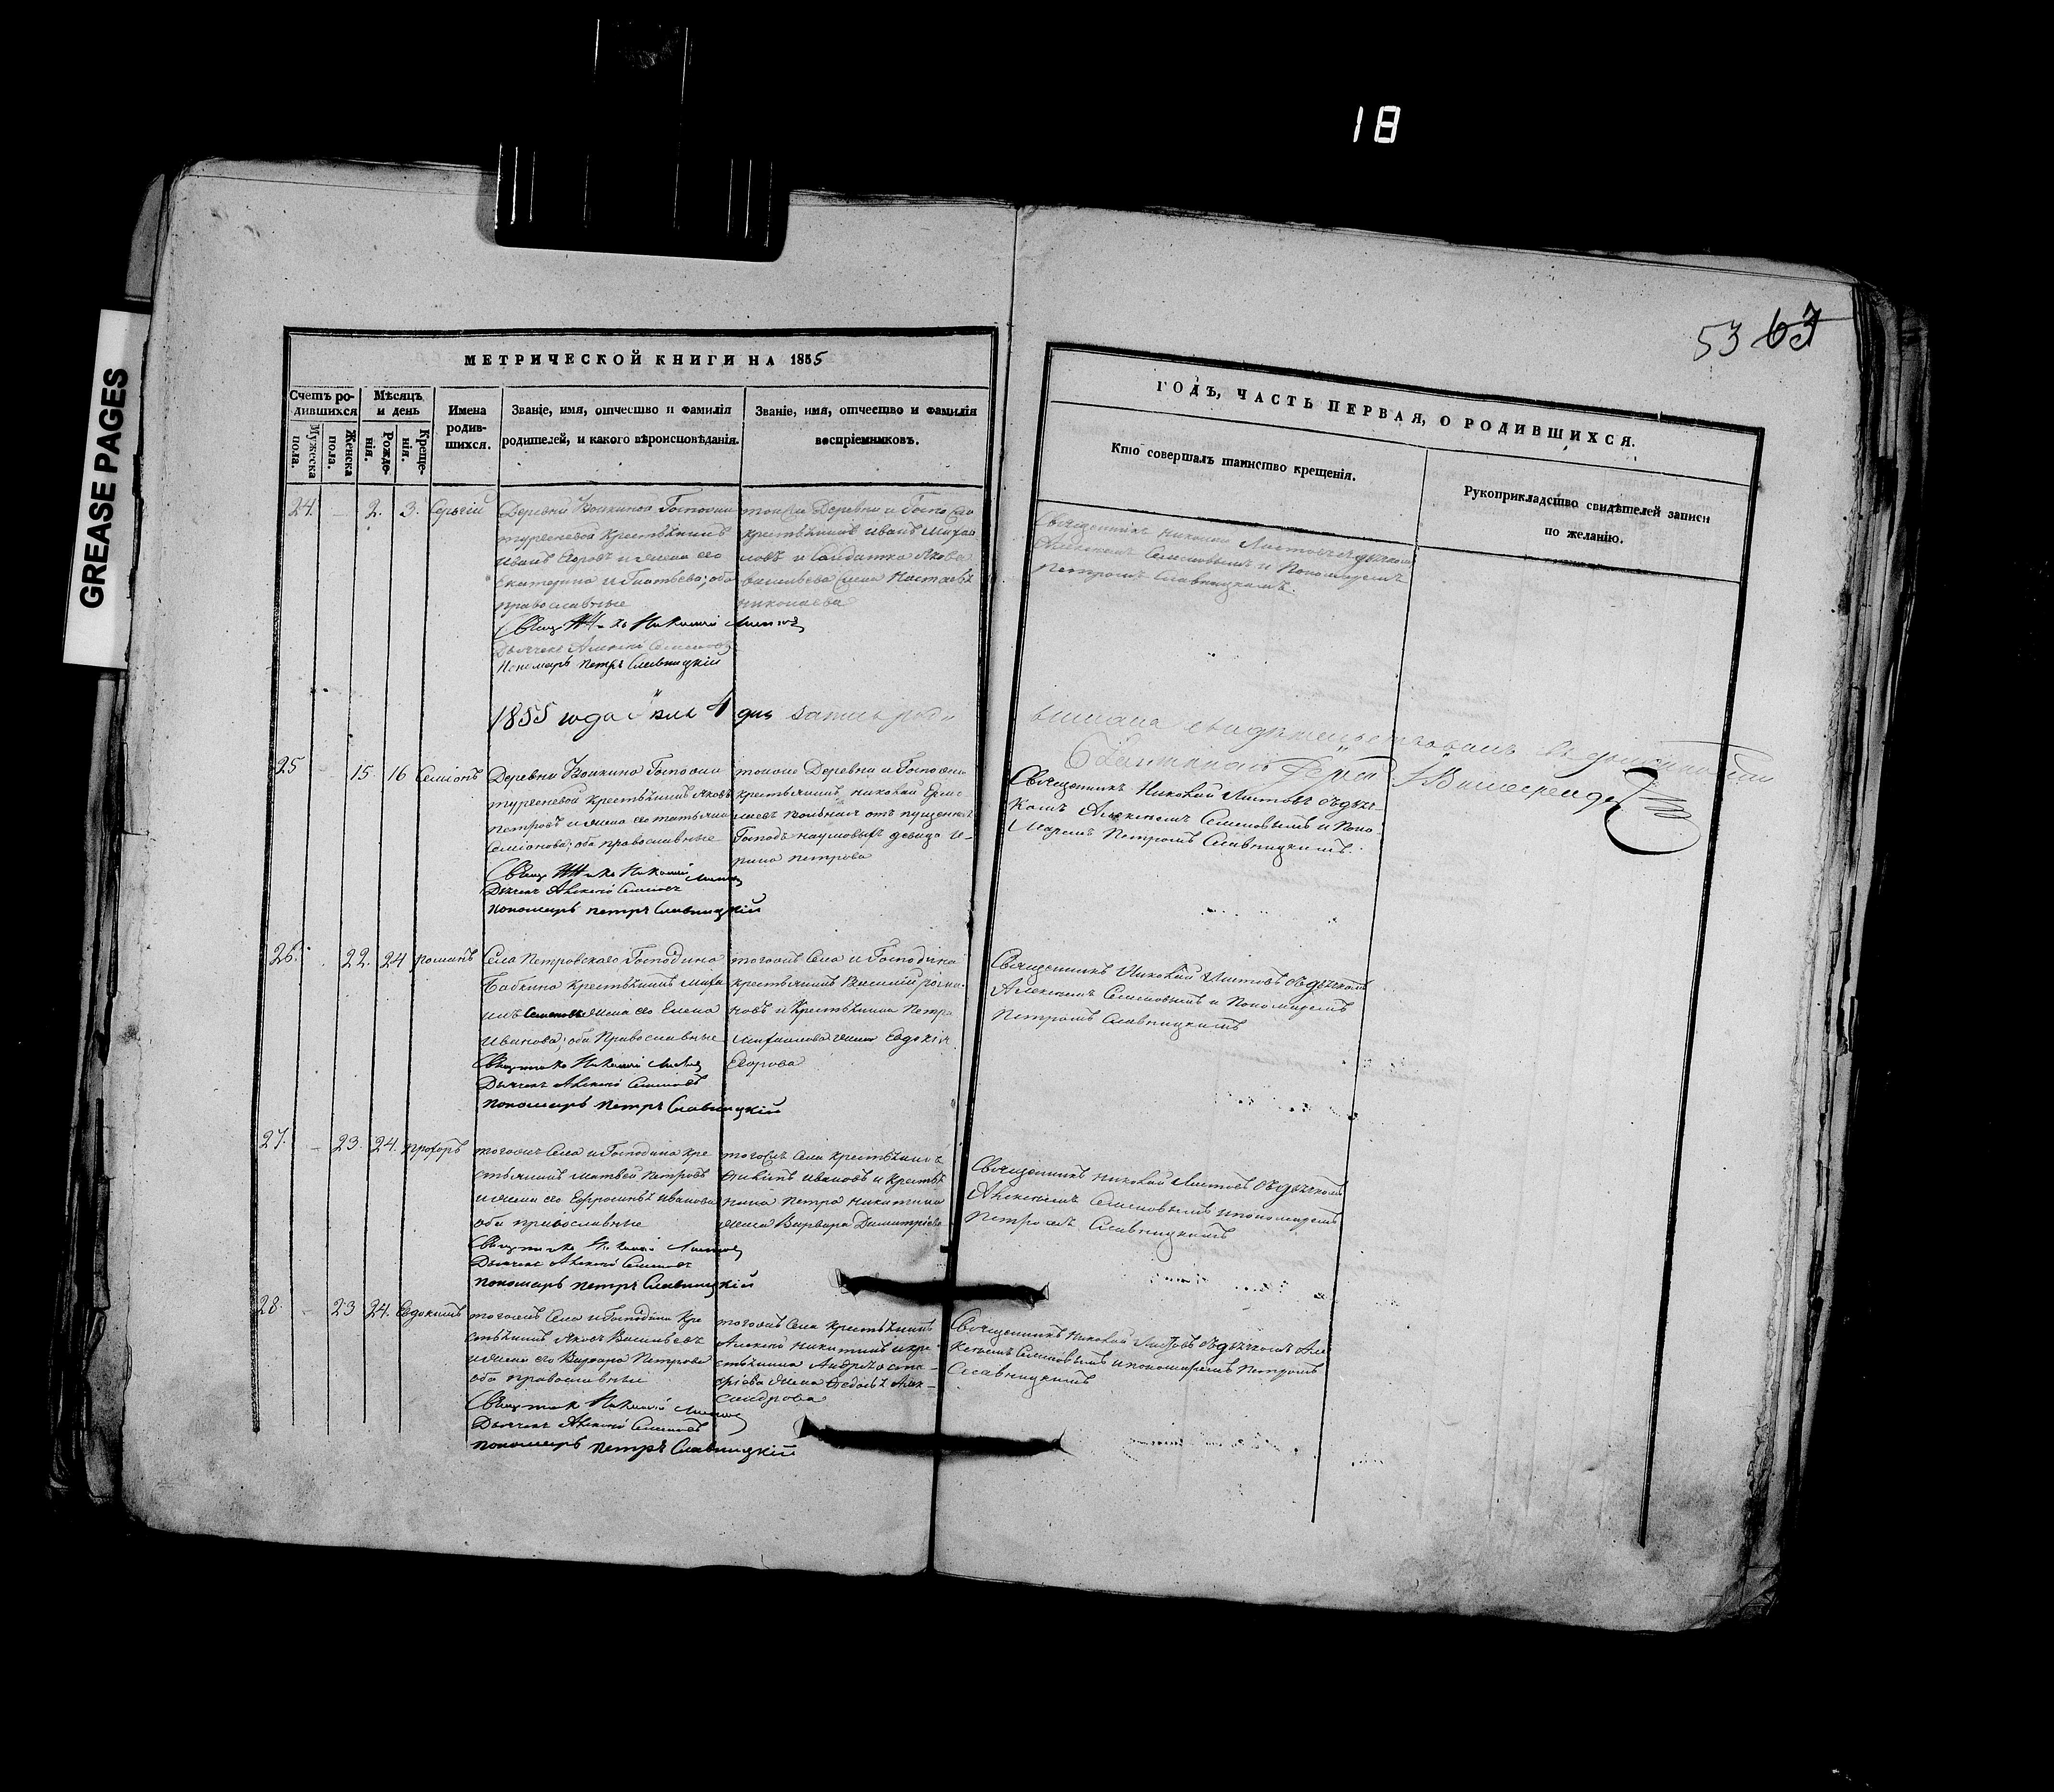 18
GREASE PAGES
53 63
МЕТРИЧЕСКОЙ КНИГИ НА 1855
Счетъ ро-
дившихся
Мѣсяцъ
и день
Мужеска
пола.
Женска
пола.
Рожде-
нія.
Креще-
нія.
Имена
родив-
шихся.
Званіе, имя, отчество и фамилія
родителей, и какого вѣроисповѣданія.
Званіе, имя, отчество и фамилія
воспріемниковъ.
ГОДЪ, ЧАСТЬ ПЕРВАЯ, О РОДИВШИХСЯ.
Кто совершалъ таинство крещенія.
Рукоприкладство свидѣтелей записи
по желанію.
24. – 2. 3. Сергій
Деревни Госпожи
тургеневой Крестьянинъ
Иванъ Егоровъ и жена его
Екатерина Игнатьева; оба
православные
Николай Листовъ
Дьячекъ Алексей Семеновъ
Пономарь Петръ Славницкій
крестьянинъ Иванъ Михаи
ловъ и Солдатка Якова
Николаева
Священникъ Николай Листовъ съ дьячкомъ
Алексеемъ Семеновымъ и Пономаремъ
Петромъ Славницкимъ.
1855 года Июля 4 дня
25 – 15 16 Семіонъ
Деревни Госпожи
тургеневой Крестьянинъ Яковъ
Петровъ и жена его татьяна
Семіонова; оба православные
Николай Листовъ
Дьячекъ Алексей Семеновъ
пономарь петръ Славницкій
тойже Деревни и Госпожи
крестьянинъ Николай
отъ пущенная
Господъ наумовыхъ девица И-
рина петрова
Священникъ Николай Листовъ съ дьяч-
комъ Алексеемъ Семеновымъ и Поно-
маремъ Петромъ Славницкимъ.
26. 22. 24 романъ
Села Петровскаго Господина
Бабкина Крестьянинъ Миха
илъ Семеновъ жена его Елена
Иванова; оба Православные
Николай Листовъ
Дьячекъ Алексей Семеновъ
пономарь петръ Славницкій
тогожъ Села и Господина
крестьянинъ Василий рома-
новъ и Крестьянина Петра
Михаилова жена Евдокія
Егорова
Священникъ Николай Листовъ съ дьячкомъ
Алексеемъ Семеновымъ и Пономаремъ
Петромъ Славницкимъ
27. – 23. 24. прохоръ
тогожъ Села и Господина Кре
стьянинъ Матвей Петровъ
и жена его Ефросинья Иванова
оба православные
Листовъ
Дьячекъ Алексей Семеновъ
пономарь петръ Славницкій
тогожъ Села Крестьянинъ
Ивановъ и Крестья
нина Петра Никитина
жена Варвара Димитріева
Священникъ Николай Листовъ съ дьячкомъ
Алексеемъ Семеновымъ и пономаремъ
Петромъ Славницкимъ
28. – 23 24. Евдокимъ
тогожъ Села и Господина Кре
стьянинъ Яковъ Васильевъ
и жена его Варвара Петрова
оба православные
Николай Листовъ
Дьячекъ Алексей Семеновъ
пономарь петръ Славницкій
тогожъ Села Крестьянинъ
Алексей Никитинъ и кре-
стьянина Андрея
жена Федосья Алек-
сандрова
Священникъ Николай Листовъ съ дьячкомъ Але
ксеемъ Семеновымъ и пономаремъ Петромъ
Славницкимъ